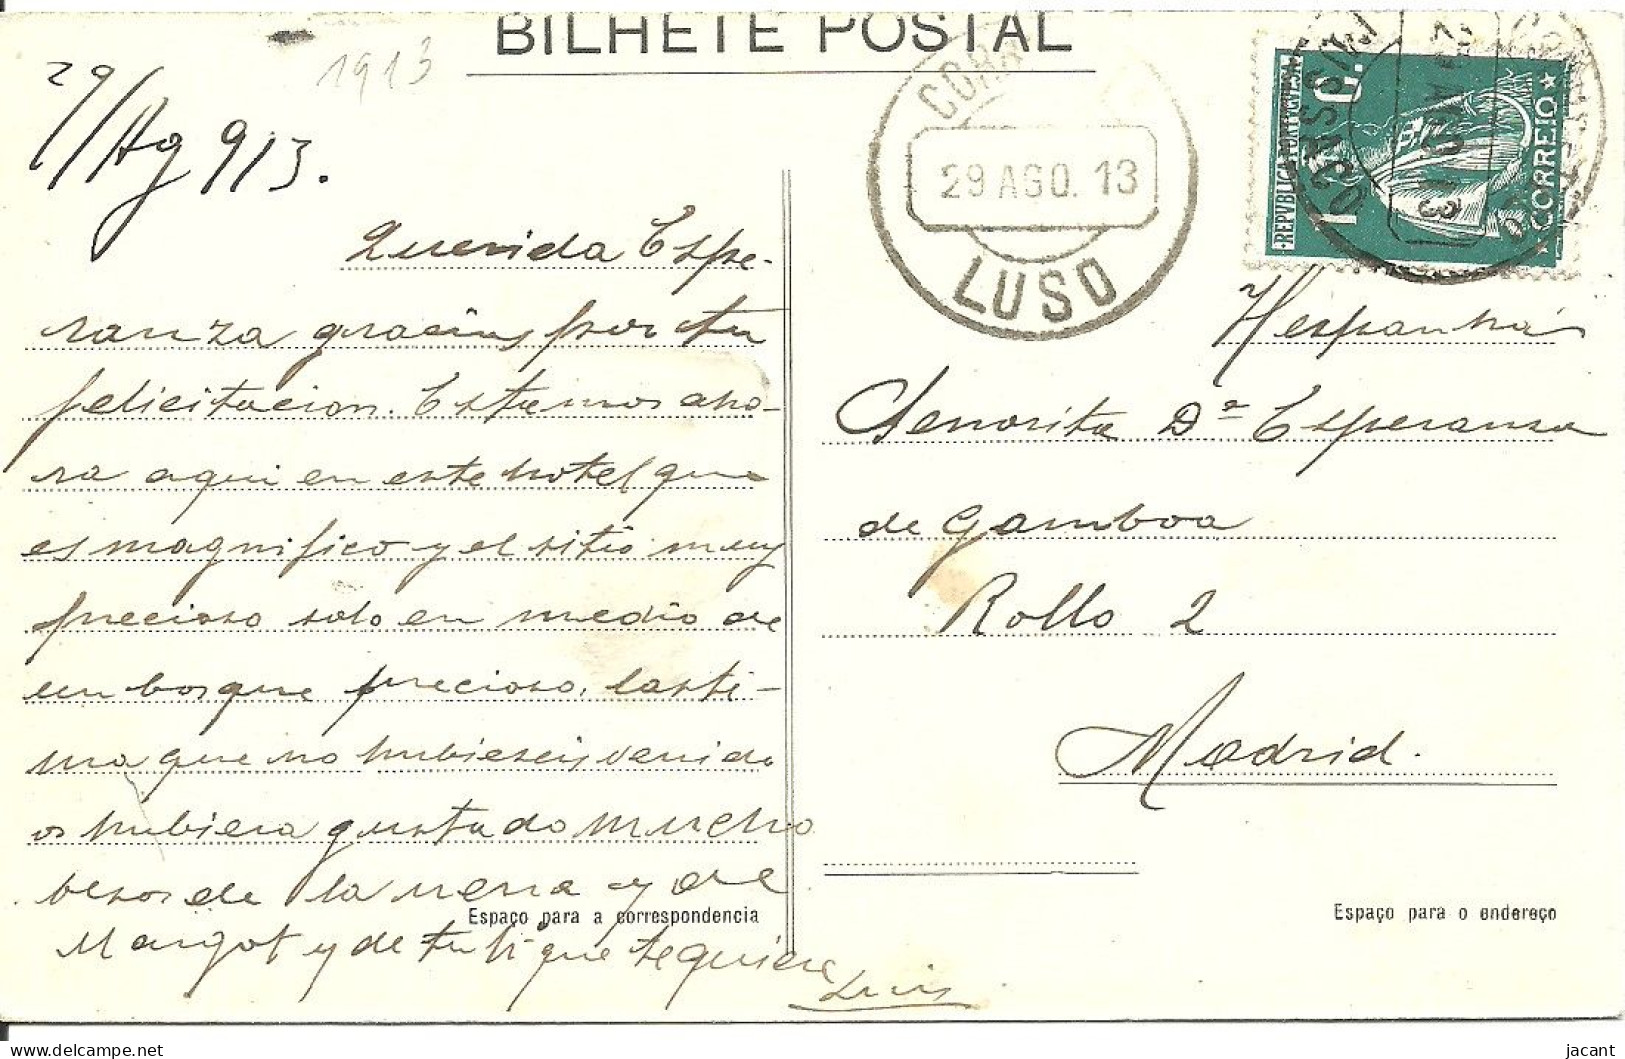 BILHETE POSTAL
1913
29/Ag 913.
Querida Espe-
ranza gracias por tu
felicitacion. Estamos aho-
ra aqui en este hotel que
es magnifico y el sitio muy
precioso solo en medio de
un bosque precioso, lasti-
ma que no hubieseis venido
os hubiera gustado mucho
besos de la nena y de
Margot y de tu ti que te quiere
Luis
Espaço para a correspondencia
CORR
29 AGO. 13
LUSO
REPVBLICA PORTVGVESA
C.
CORREIO
13
Hespanha
Senorita Dª Esperanza
de Gamboa
Rollo 2
Madrid.
Espaço para o endereço
delcampe.net
jacant